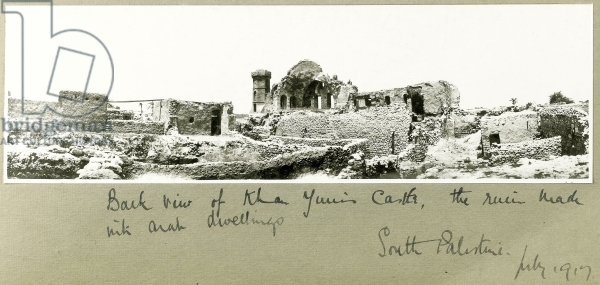 bridgeman
images
Back view of Khan Yunis Castle, the ruin made
into arab dwellings
South Palestine.
July 1917.